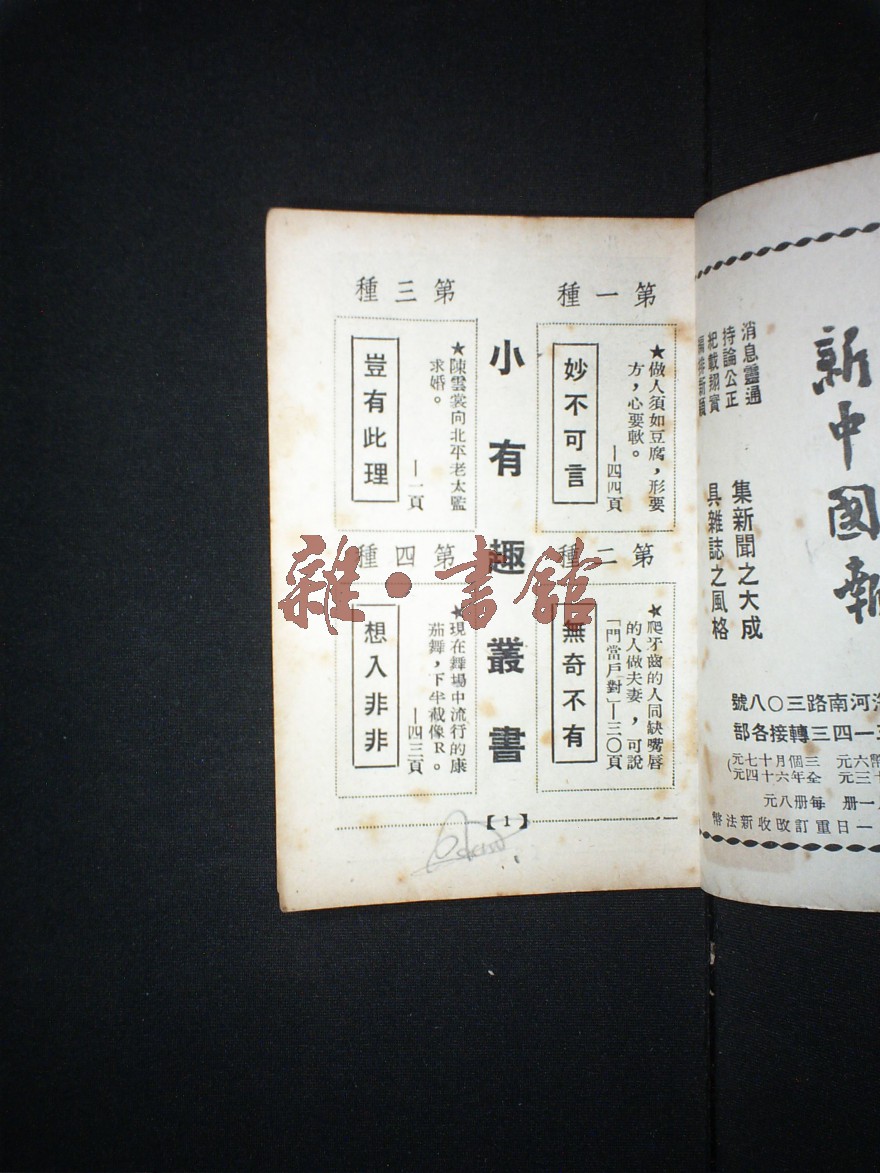 小有趣叢書
第一種
妙不可言
★做人須如豆腐，形要
方，心要軟。
—四四頁
第二種
無奇不有
★爬牙齒的人同缺嘴唇
的人做夫妻，可說
「門當戶對」—三〇頁
第三種
豈有此理
★陳雲裳向北平老太監
求婚。
—一頁
第四種
想入非非
★現在舞場中流行的康
茄舞，下半截像R。
—四三頁
【1】
雜·書館
新中國報
消息靈通
持論公正
紀載翔實
編排新穎
集新聞之大成
具雜誌之風格
河南路三〇八號
一四三轉接各部
幣六元 三個月十七元
十三元 全年六十四元
一册 每册八元
一日重訂改收新法幣